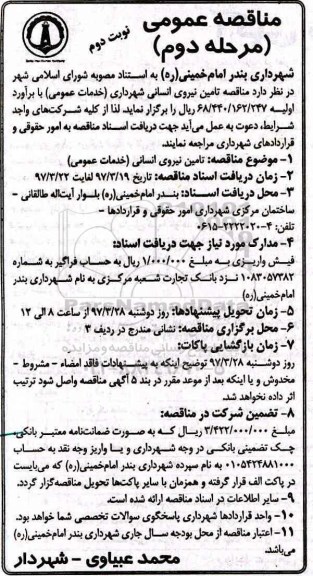 مناقصه عمومی
(مرحله دوم)
نوبت دوم
شهرداری بندر امام‌خمینی(ره) به استناد مصوبه شورای اسلامی شهر
در نظر دارد مناقصه تامین نیروی انسانی شهرداری (خدمات عمومی) با برآورد
اولیه ۶۸/۴۴۰/۱۶۲/۲۴۷ ریال را برگزار نماید، لذا از کلیه شرکت‌های واجد
شرایط، دعوت به عمل می‌آید جهت دریافت اسناد مناقصه به امور حقوقی و
قراردادهای شهرداری مراجعه نمایند.
۱- موضوع مناقصه: تامین نیروی انسانی (خدمات عمومی)
۲- زمان دریافت اسناد مناقصه: تاریخ ۹۷/۳/۱۹ لغایت ۹۷/۳/۲۲
۳- محل دریافت اسناد: بندر امام‌خمینی(ره) بلوار آیت‌اله طالقانی -
ساختمان مرکزی شهرداری امور حقوقی و قراردادها -
تلفن: ۴-۰۶۱۵-۲۲۲۲۰۲۰
۴- مدارک مورد نیاز جهت دریافت اسناد:
فیش واریزی به مبلغ ۱/۰۰۰/۰۰۰ ریال به حساب فراگیر به شماره
۱۰۸۳۰۵۷۳۸۲ نزد بانک تجارت شعبه مرکزی به نام شهرداری بندر
امام‌خمینی(ره)
۵- زمان تحویل پیشنهادها: روز دوشنبه ۹۷/۳/۲۸ از ساعت ۸ الی ۱۲
۶- محل برگزاری مناقصه: نشانی مندرج در ردیف ۳
۷- زمان بازگشایی پاکات:
روز دوشنبه ۹۷/۳/۲۸ توضیح اینکه به پیشنهادات فاقد امضاء - مشروط -
مخدوش و یا اینکه بعد از موعد مقرر در بند ۵ آگهی مناقصه واصل شود ترتیب
اثر داده نخواهد شد.
۸- تضمین شرکت در مناقصه:
مبلغ ۳/۴۲۲/۰۰۰/۰۰۰ ریال که به صورت ضمانت‌نامه معتبر بانکی،
چک تضمینی بانکی در وجه شهرداری و یا واریز وجه نقد به حساب
۰۱۰۵۴۲۴۸۸۱۰۰۰ به نام سپرده شهرداری بندر امام‌خمینی(ره) که می‌بایست
در پاکت الف قرار گرفته و همزمان با سایر پاکت‌ها تحویل مناقصه‌گزار گردد.
۹- سایر اطلاعات در اسناد مناقصه ارائه شده است.
۱۰- واحد قراردادها شهرداری پاسخگوی سوالات تخصصی شما خواهد بود.
۱۱- اعتبار مناقصه از محل بودجه سال جاری شهرداری بندر امام‌خمینی(ره)
می‌باشد.
محمد عبیاوی - شهردار